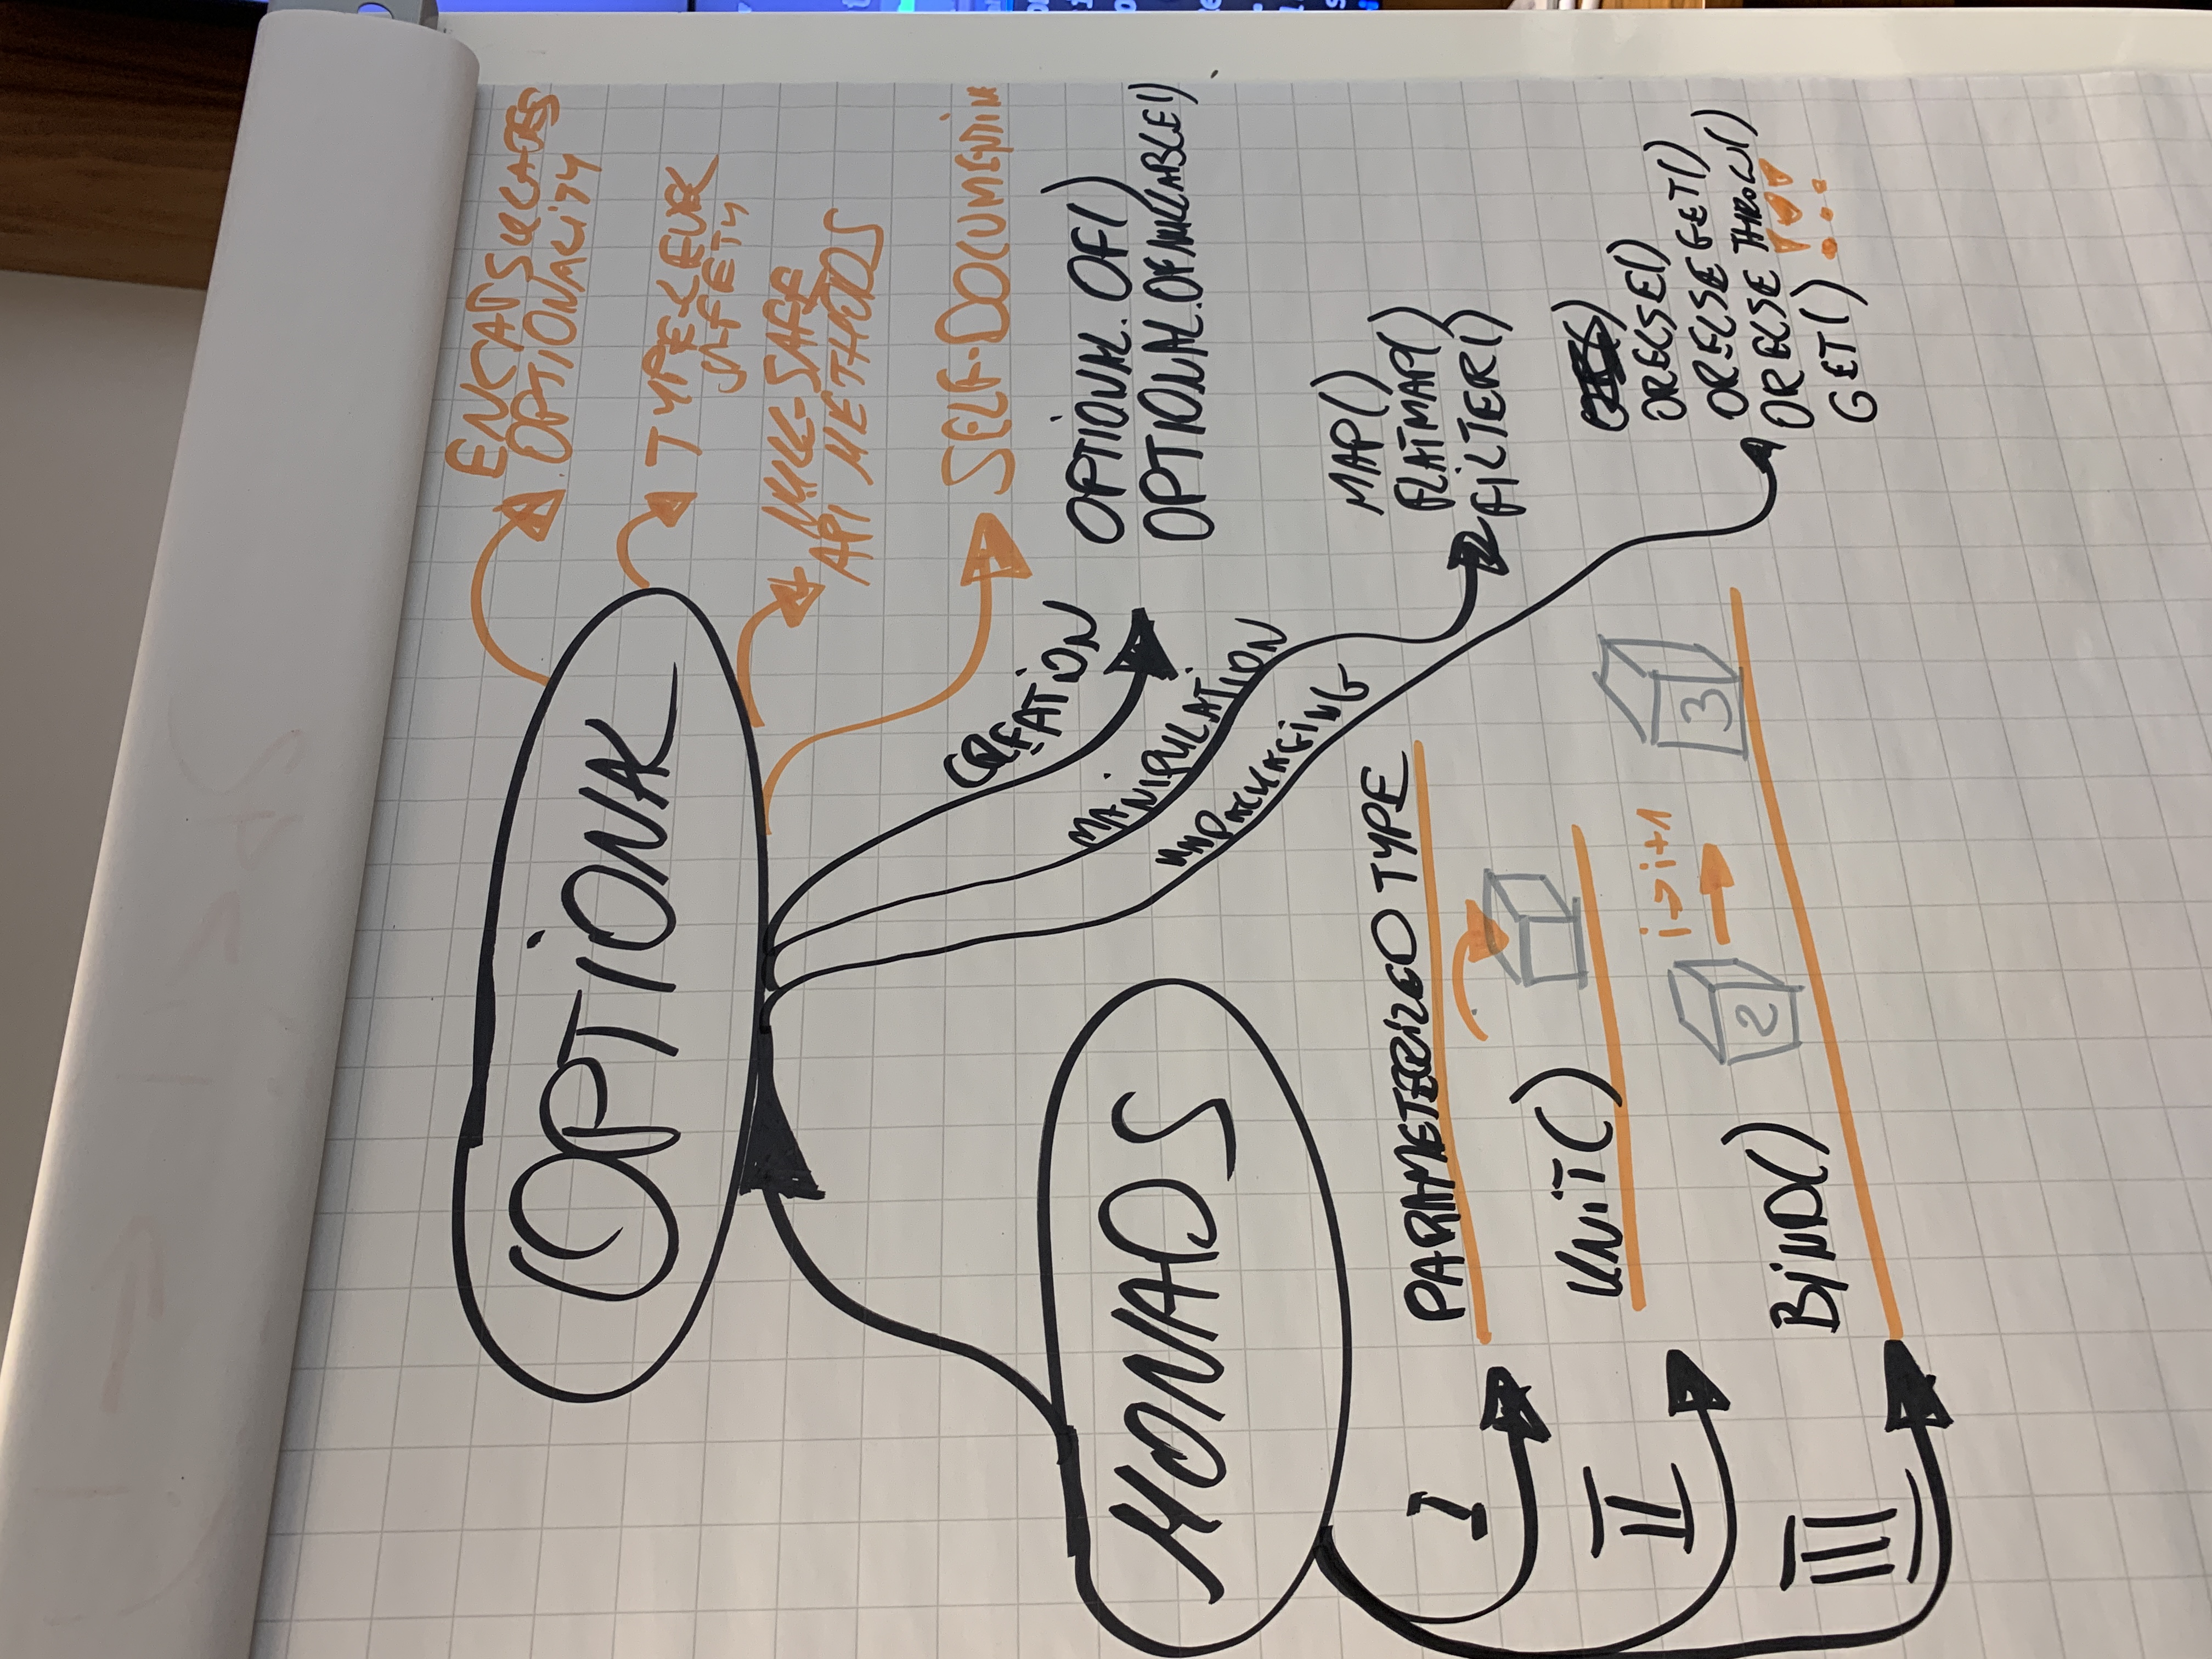 OPTIONAL
ENCAPSULATES
OPTIONALITY
TYPE-LEVEL
SAFETY
NULL-SAFE
API METHODS
SELF-DOCUMENTING
CREATION
OPTIONAL.OF()
OPTIONAL.OFNULLABLE()
MANIPULATION
MAP()
FLATMAP()
FILTER()
UNPACKAGING
ORELSE()
ORELSEGET()
ORELSE THROW()
GET() !!!
MONADS
I PARAMETERIZED TYPE
II UNIT()
III BIND()
2 i→i+1 3